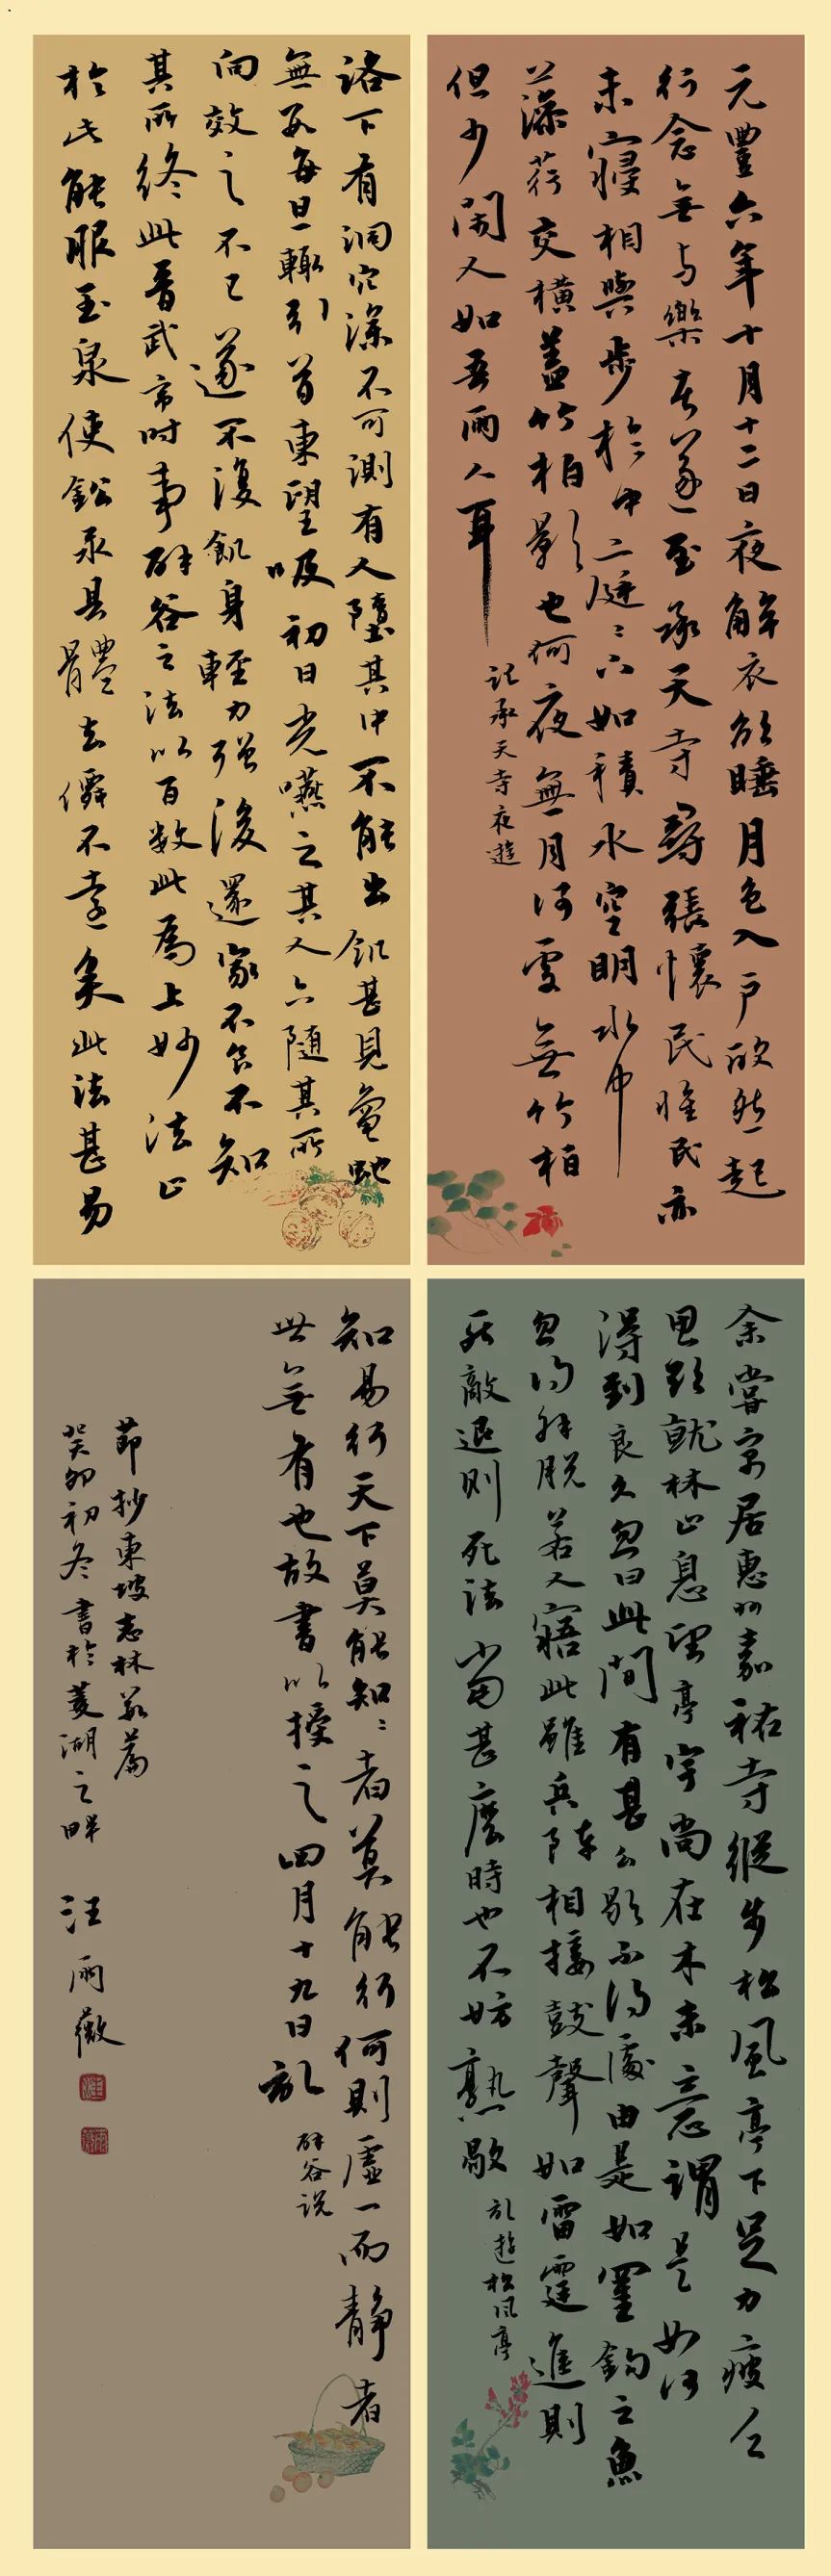 元豐六年十月十二日夜解衣欲睡月色入戶欣然起
行念無与樂者遂至承天寺尋張懷民懷民亦
未寢相與步於中庭〻下如積水空明水中
藻荇交橫蓋竹柏影也何夜無月何處無竹柏
但少閑人如吾兩人耳
記承天寺夜遊
余嘗寓居惠州嘉祐寺縱步松風亭下足力疲乏
思欲就林止息望亭宇尚在木末意謂是如何
得到良久忽曰此間有甚么歇不得處由是如罣鈎之魚
忽得解脱若人寤此雖兵陣相接鼓聲如雷霆進則
死敵退則死法當甚麽時也不妨熟歇
記遊松風亭
洛下有洞穴深不可測有人墮其中不能出飢甚見龜蛇
無數每旦輒引首東望吸初日光嚥之其人亦隨其所
向效之不已遂不復飢身輕力强後還家不食不知
其所終此晉武帝時事辟谷之法以百數此為上妙法止
於此能服玉泉使鉛汞具體去僊不遠矣此法甚易
知易行天下莫能知〻者莫能行何則虛一而靜者
世無有也故書以授之四月十九日記
辟谷説
節抄東坡志林數篇
癸卯初冬書於菱湖之畔 汪雨薇